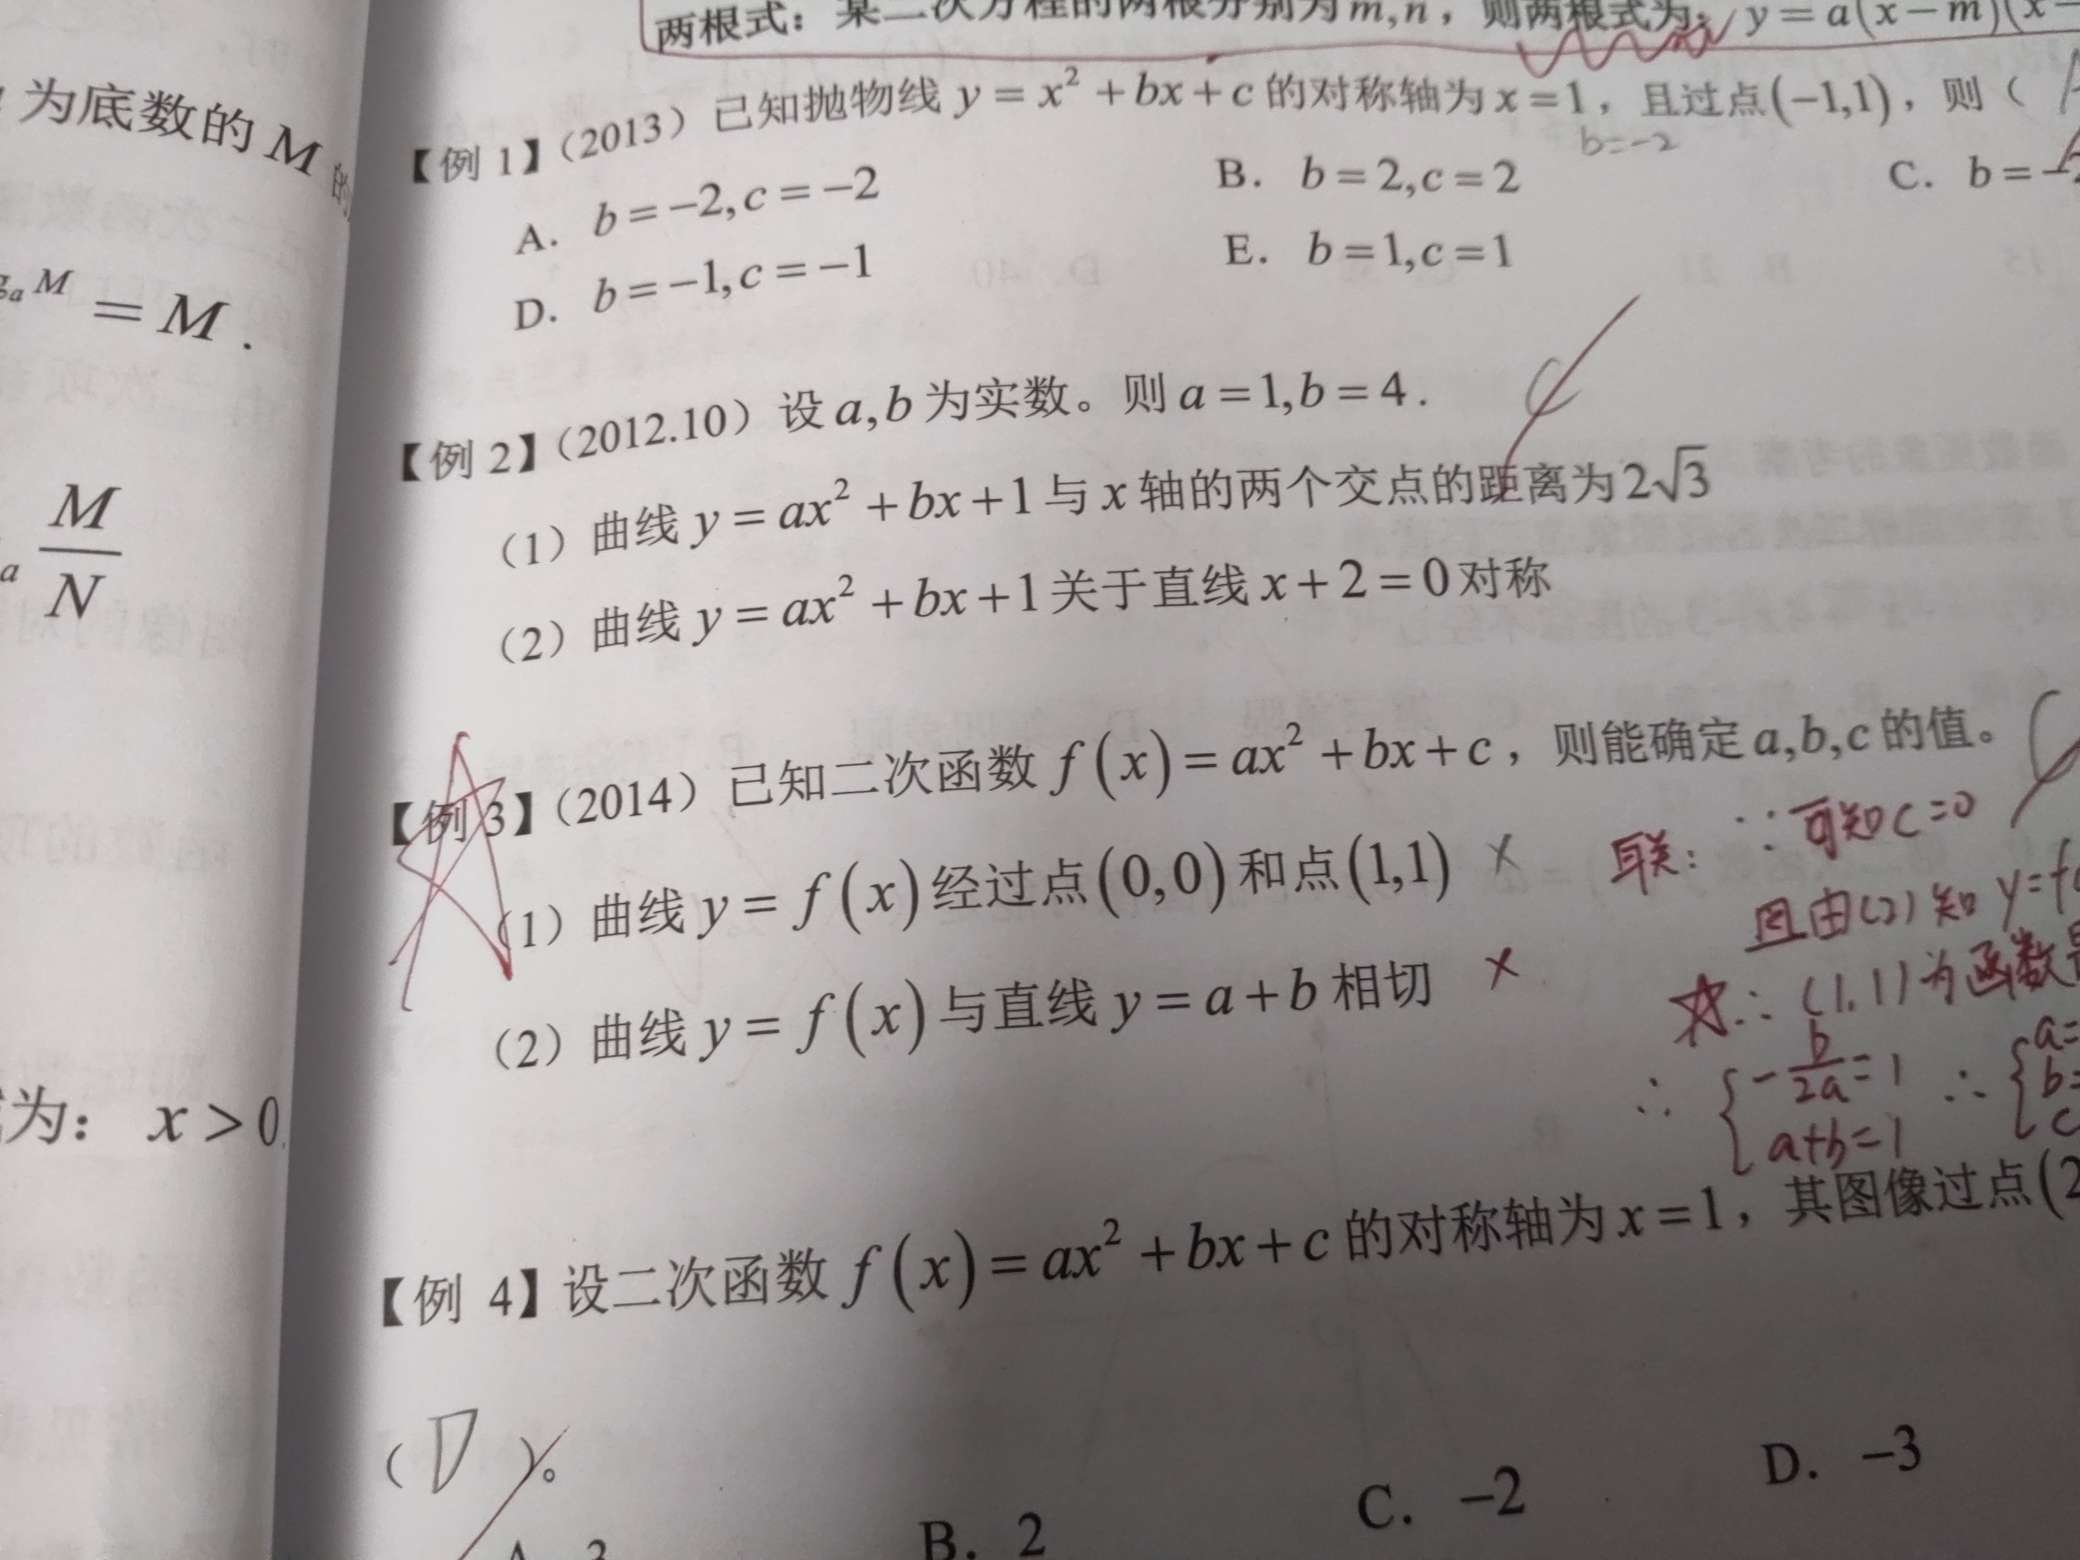 两根式：某二次方程的两根分别为m,n，则两根式为：y=a(x-m)(x-
为底数的M的
【例 1】（2013）已知抛物线 y=x²+bx+c 的对称轴为 x=1，且过点(-1,1)，则（ A
b=-2
A. b=-2,c=-2 B. b=2,c=2 C. b=-2
D. b=-1,c=-1 E. b=1,c=1
gₐM = M .
【例 2】（2012.10）设 a,b 为实数。则 a=1,b=4 .
M/N
a
（1）曲线 y=ax²+bx+1 与 x 轴的两个交点的距离为 2√3
（2）曲线 y=ax²+bx+1 关于直线 x+2=0 对称
【例 3】（2014）已知二次函数 f(x)=ax²+bx+c，则能确定 a,b,c 的值。 C
（1）曲线 y=f(x) 经过点 (0,0) 和点 (1,1) ×
联：∵可知c=0
且由(2)知 y=f(
（2）曲线 y=f(x) 与直线 y=a+b 相切 ×
☆∴(1,1)为函数
∴ { -b/2a=1 ∴ { a=
a+b=1 b=
c
为： x>0
【例 4】设二次函数 f(x)=ax²+bx+c 的对称轴为 x=1，其图像过点(2
（ D ）。
B. 2 C. -2 D. -3